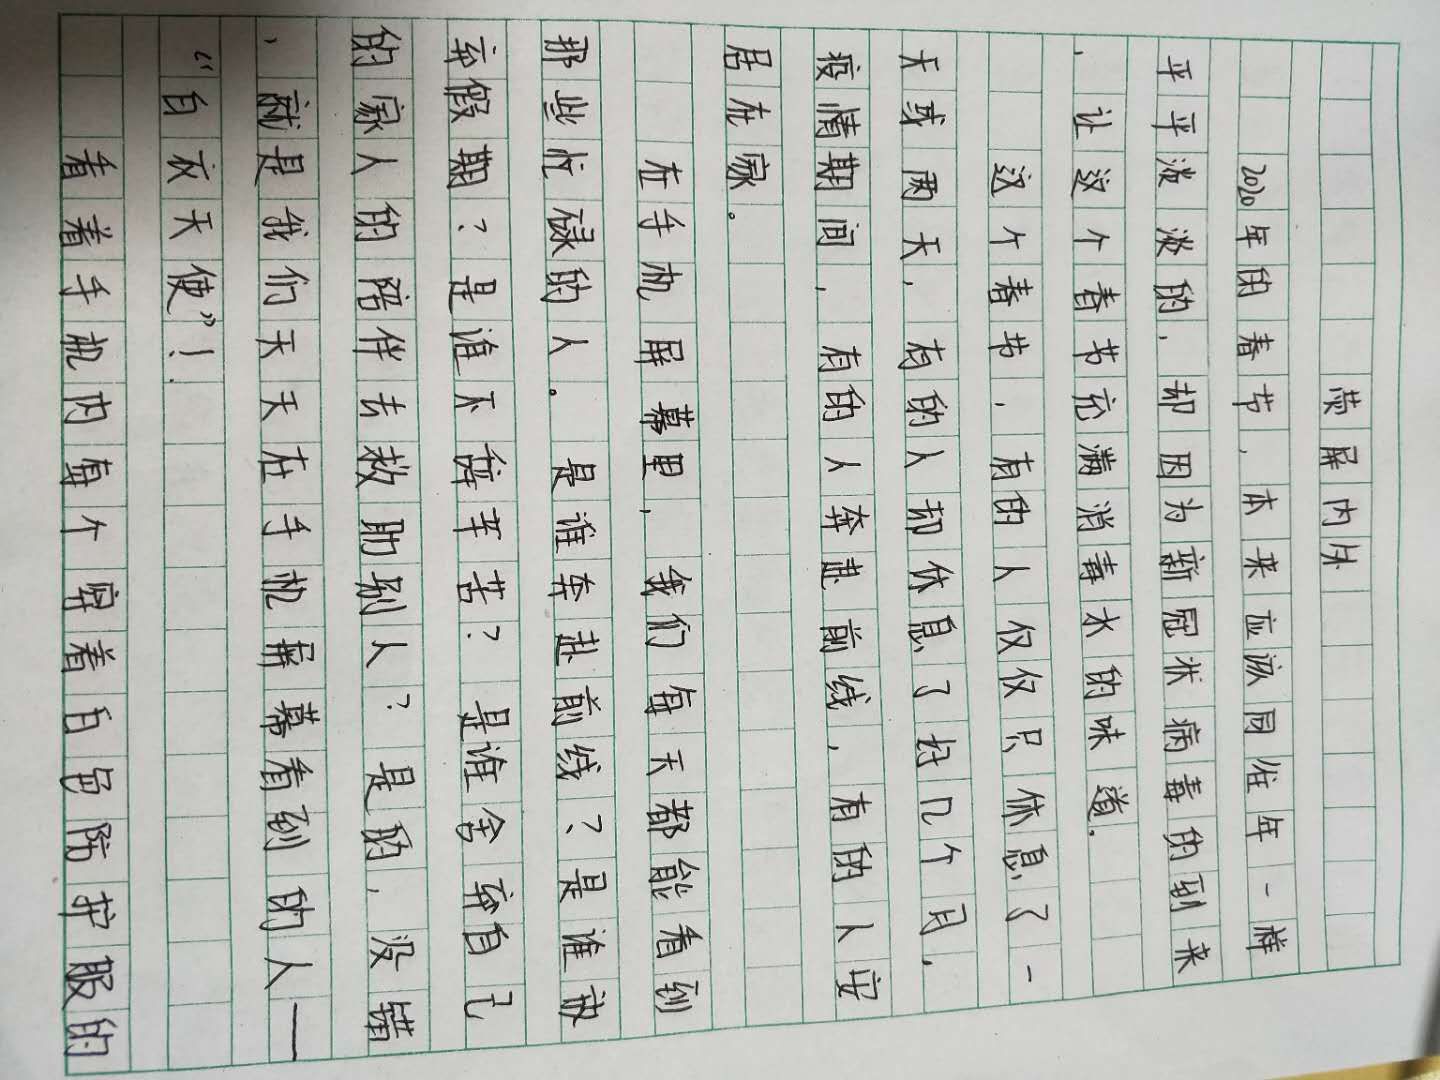 荧屏内外
2020年的春节,本来应该同往年一样
平平淡淡的,却因为新冠状病毒的到来
,让这个春节充满消毒水的味道。
这个春节,有的人仅仅只休息了一
天或两天,有的人却休息了好几个月,
疫情期间,有的人奔赴前线,有的人安
居在家。
在手机屏幕里,我们每天都能看到
那些忙碌的人。是谁奔赴前线?是谁放
弃假期?是谁不辞辛苦?是谁舍弃自己
的家人的陪伴去救助别人?是的,没错
,就是我们天天在手机屏幕看到的人—
“白衣天使”!
看着手机内每个穿着白色防护服的